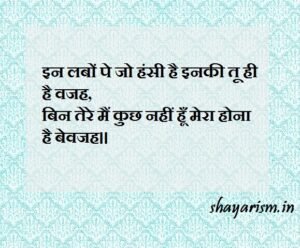 इन लबों पे जो हंसी है इनकी तू ही
है वजह,
बिन तेरे मैं कुछ नहीं हूँ मेरा होना
है बेवजह।।
shayarism.in